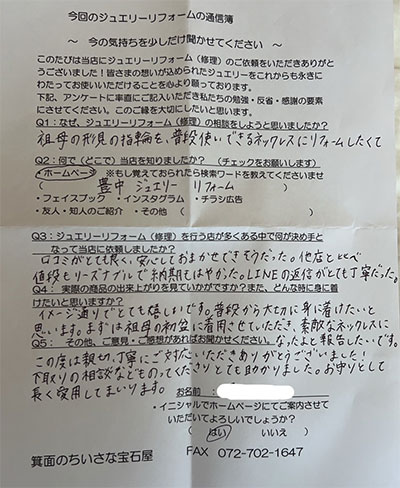 今回のジュエリーリフォームの通信簿
～ 今の気持ちを少しだけ聞かせてください ～
このたびは当店にジュエリーリフォーム（修理）のご依頼をいただきありがと
うございました！皆さまの想いが込められたジュエリーをこれからも永きに
わたってお使いいただけることを心より願っております。
下記、アンケートに率直にご記入いただき私たちの勉強・反省・感謝の要素
にさせてください。このご縁を大切にしたいと思います。
Q1：なぜ、ジュエリーリフォーム（修理）の相談をしようと思いましたか？
祖母の形見の指輪を、普段使いできるネックレスにリフォームしたくて
Q2：何で（どこで）当店を知りましたか？　（チェックをお願いします）
・ホームページ　※もし覚えておられたら検索ワードを教えてくださいませ
（　豊中 ジュエリー リフォーム　）
・フェイスブック ・インスタグラム ・チラシ広告
・友人・知人のご紹介 ・その他（　）
Q3：ジュエリーリフォーム（修理）を行う店が多くある中で何が決め手と
なって当店に依頼しましたか？
口コミがとても良く、安心しておまかせできそうだった。他店と比べ
値段もリーズナブルで納期もはやかった。LINEの返信がとても丁寧だった。
Q4：　実際の商品の出来上がりを見ていかがですか？また、どんな時に身に着
けたいと思いますか？
イメージ通りでとても嬉しいです。普段から大切に身に着けたいと
思います。まずは祖母の初盆に着用させていただき、素敵なネックレスに
なったよと報告したいです。
Q5：　その他、ご意見・ご感想があればお聞かせください。
この度は親切、丁寧にご対応いただきありがとうございました！
下取りの相談などものってくださりとても助かりました。お守りとして
長く愛用してまいります。
お名前：
・イニシャルでホームページにてご案内させて
いただいてよろしいでしょうか？
（　はい　いいえ　）
箕面のちいさな宝石屋　FAX 072-702-1647